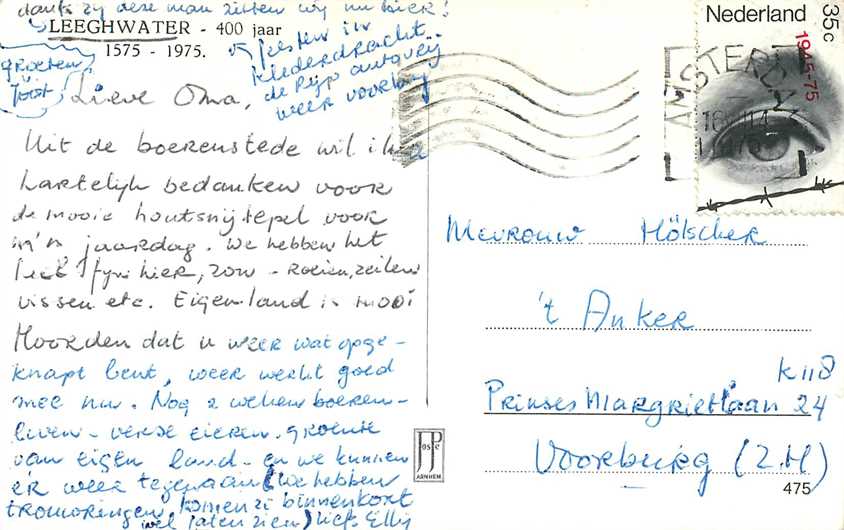 dank zij deze man zitten wij nu hier!
LEEGHWATER - 400 jaar
1575 - 1975.
feesten in
klederdracht
de Rijp
weer voorbij
groeten
Joost
Lieve Oma,
Uit de boerenstede wil ik u
hartelijk bedanken voor
de mooie houtsnijlepel voor
m'n jaardag. We hebben het
fijn hier, zon - roeien, zeilen
vissen etc. Eigen land is mooi
Hoorden dat u weer wat opge-
knapt bent, weer werkt goed
mee nu. Nog 2 weken boeren-
leven - verse eieren. groente
van eigen land - en we kunnen
er weer tegenaan! (We hebben
komen ze binnenkort
wel laten zien) liefs Elly
Nederland 35c
1945-75
AMSTERDAM
Mevrouw Hölscher
't Anker
K 118
Prinses Margrietlaan 24
Voorburg (Z.H)
JosPe
ARNHEM
475